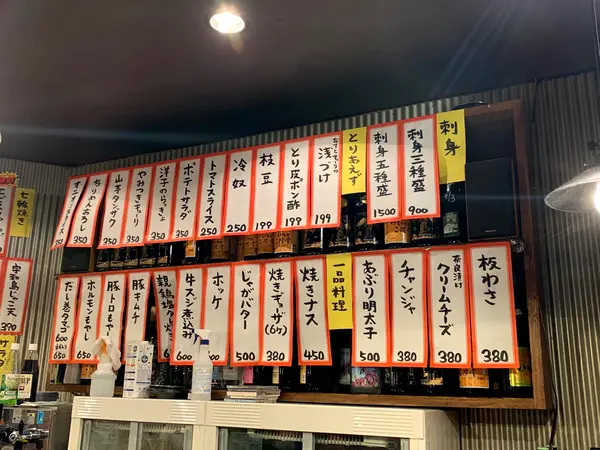 刺身
刺身三種盛
900
刺身五種盛
1500
とりあえず
浅づけ
199
とり皮ポン酢
199
枝豆
199
冷奴
250
トマトスライス
250
ポテトサラダ
350
洋子のらっきょ
350
やみつききゅーり
350
山芋タンザク
350
ちりめんおろし
350
350
七輪焼き
板わさ
380
奈良漬け
クリームチーズ
380
チャンジャ
380
あぶり明太子
500
一品料理
焼きナス
450
焼きギョーザ(6ケ)
500
じゃがバター
500
ホッケ
600
牛スジ煮込み
600
豚キムチ
豚トロもやし
ホルモンもやし
650
だし巻タマゴ
600
650
宇和島じゃこ天
390